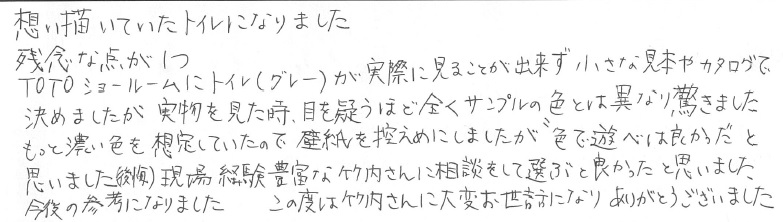 想い描いていたトイレになりました
残念な点が1つ
TOTOショールームにトイレ(グレー)が実際に見ることが出来ず小さな見本やカタログで
決めましたが 実物を見た時、目を疑うほど全くサンプルの色とは異なり驚きました
もっと濃い色を想定していたので壁紙を控えめにしましたが"色で遊べば良かった"と
思いました(後悔)現場経験豊富な竹内さんに相談をして選ぶと良かったと思いました
今後の参考になりました この度は竹内さんに大変お世話になりありがとうございました